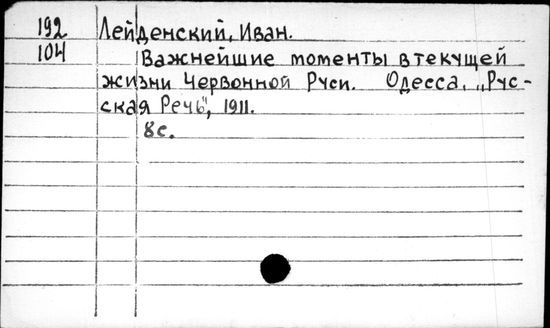 192 Лейденский, Иван.
104 Важнейшие моменты в текущей
жизни Червонной Руси. Одесса, „Рус-
ская Речь", 1911.
8с.